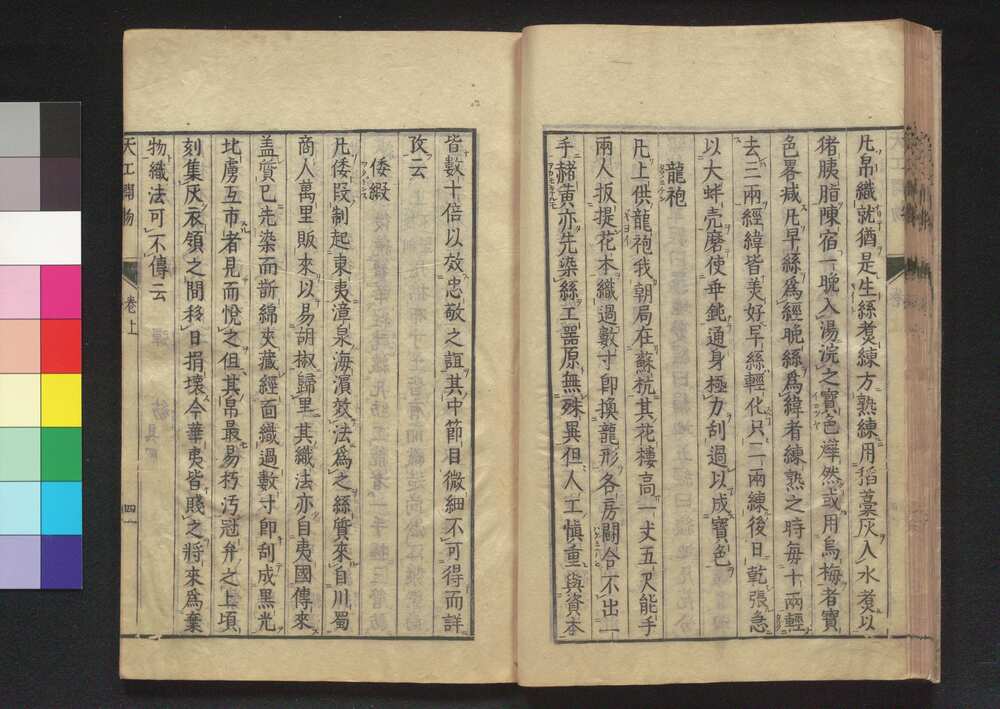 凡帛織就猶是生絲煑練方熟練用稻藁灰入水煑以
猪胰脂陳宿一晩入湯浣之寶色燁然或用烏梅者寶
色畧减凡早絲爲經晩絲爲緯者練熟之時毎十兩輕
去三兩經緯皆美好早絲輕化只二兩練後日乾張急
以大蚌壳磨使乖鈍通身極力刮過以成寶色
龍袍
凡上供龍袍我朝局在蘇杭其花樓高一丈五尺能手
兩人扳提花本織過數寸卽換龍形各房鬭合不出一
手赭黄亦先染絲工器原無殊異但人工愼重與資本
皆數十倍以效忠敬之誼其中節目微細不可得而詳
攷云
倭緞
凡倭叚制起東夷漳泉海濵效法爲之絲質來自川蜀
商人萬里販來以易胡椒歸里其織法亦自夷國傳來
盖質已先染而斮綿夾藏經面織過數寸卽刮成黒光
北虜互市者見而悅之但其帛最易朽汚冠弁之上頃
刻集灰衣領之間移日損壊今華夷皆賤之將來爲棄
物織法可不傳云
天工開物
卷上
四